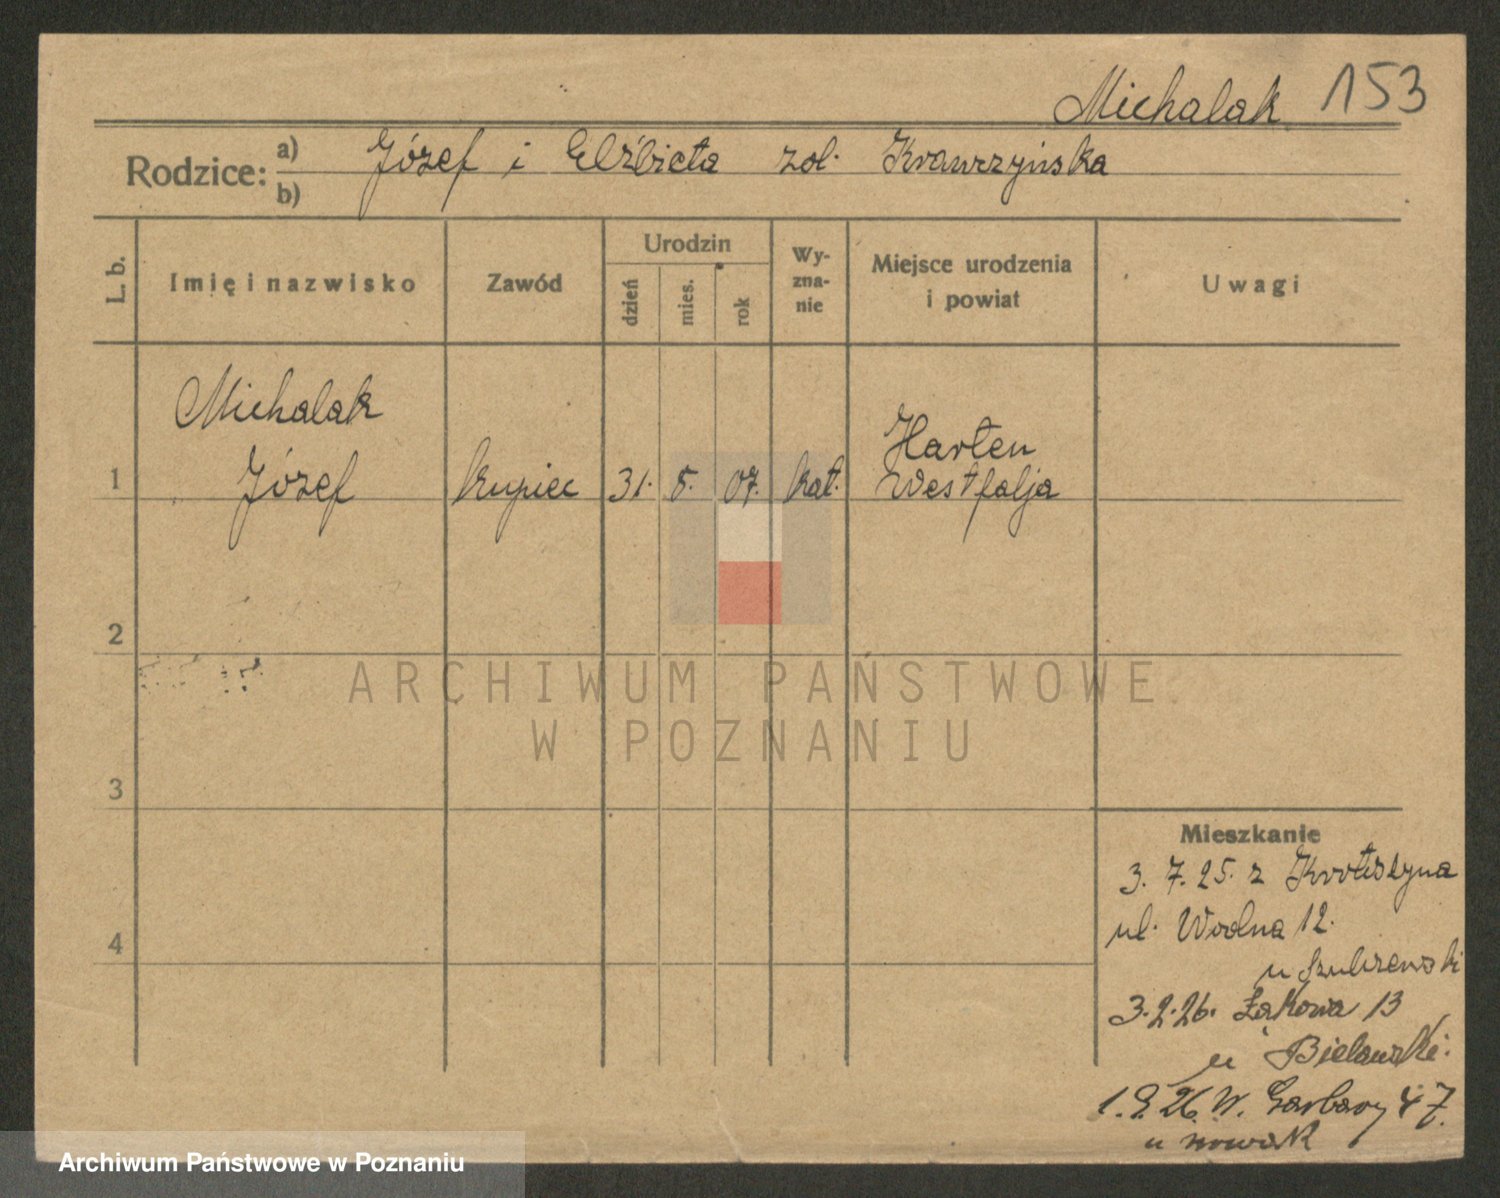 Michalak 153
Rodzice: a) Józef i Elżbieta zd. Krawczyńska
b)
L. b.
Imię i nazwisko
Zawód
Urodzin
dzień
mies.
rok
Wy-
zna-
nie
Miejsce urodzenia
i powiat
Uwagi
Michalak
1 Józef kupiec 31. 5. 07. kat. Harten
Westfalja
2
3
4
ARCHIWUM PAŃSTWOWE
W POZNANIU
Mieszkanie
3. 7. 25. z Krotoszyna
ul. Wodna 12.
u
3.2.26. Łąkowa 13
u Bielawski.
1.9.26 W. Garbary 47.
u Nowak
Archiwum Państwowe w Poznaniu